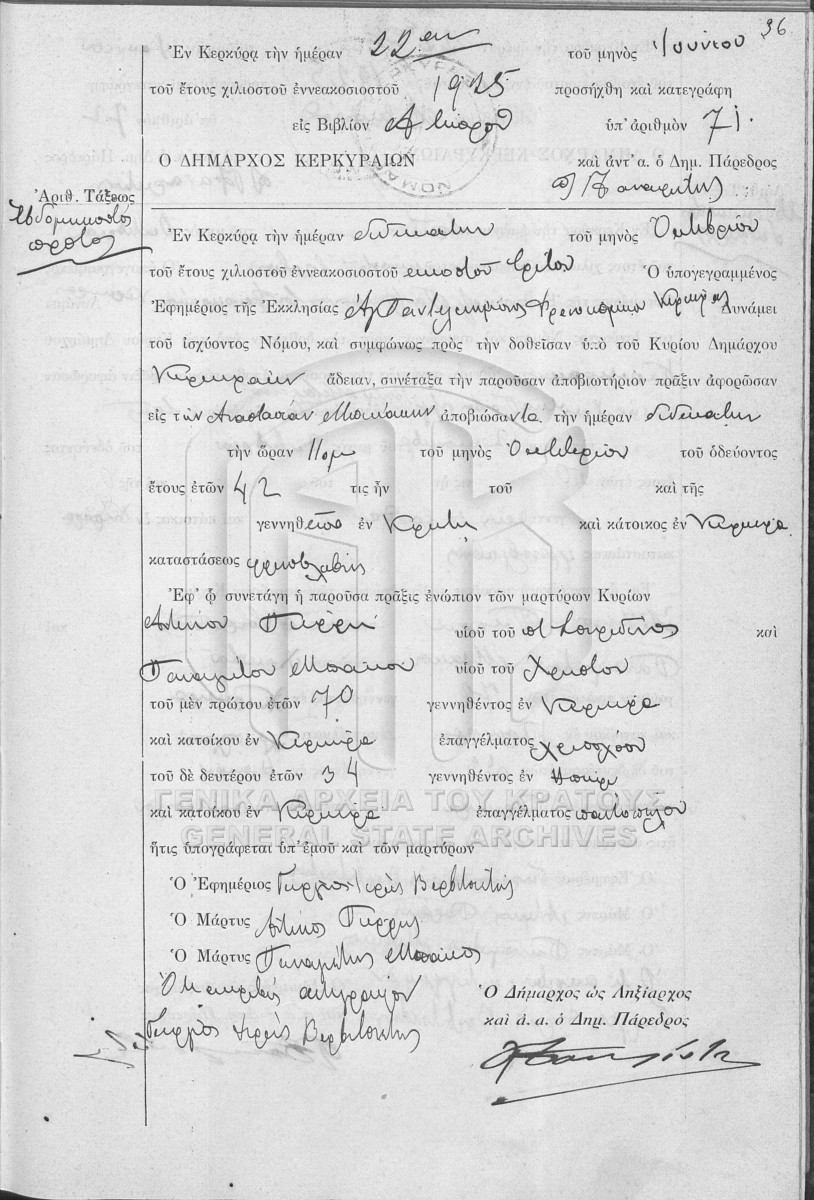 36
Ἐν Κερκύρᾳ τὴν ἡμέραν 22αν τοῦ μηνὸς Ἰουνίου
τοῦ ἔτους χιλιοστοῦ ἐννεακοσιοστοῦ 1925 προσήχθη καὶ κατεγράφη
εἰς Βιβλίον ὑπ' ἀριθμὸν 71.
Ο ΔΗΜΑΡΧΟΣ ΚΕΡΚΥΡΑΙΩΝ καὶ ἀντ' α. ὁ Δημ. Πάρεδρος
Ἀριθ. Τάξεως
Ἑβδομηκοστὸς
πρῶτος
Ἐν Κερκύρᾳ τὴν ἡμέραν δωδεκάτην τοῦ μηνὸς Ὀκτωβρίου
τοῦ ἔτους χιλιοστοῦ ἐννεακοσιοστοῦ εἰκοστοῦ τρίτου Ὁ ὑπογεγραμμένος
Ἐφημέριος τῆς Ἐκκλησίας Ἁγ Παντελεήμονος Φρενοκομείου Κερκύρας Δυνάμει
τοῦ ἰσχύοντος Νόμου, καὶ συμφώνως πρὸς τὴν δοθεῖσαν ὑπὸ τοῦ Κυρίου Δημάρχου
Κερκυραίων ἄδειαν, συνέταξα τὴν παροῦσαν ἀποβιωτήριον πρᾶξιν ἀφορῶσαν
εἰς τὸν ἀποβιώσαντα τὴν ἡμέραν δωδεκάτην
τὴν ὥραν 11 πμ τοῦ μηνὸς Ὀκτωβρίου τοῦ ὁδεύοντος
ἔτους ἐτῶν 42 τις ἦν τοῦ καὶ τῆς
γεννηθεῖσα ἐν Κρήτη καὶ κάτοικος ἐν Κέρκυρα
καταστάσεως φρενοβλαβής
Ἐφ' ᾧ συνετάγη ἡ παροῦσα πρᾶξις ἐνώπιον τῶν μαρτύρων Κυρίων
Ἀντωνίου υἱοῦ τοῦ π Σπυρίδωνος καὶ
Παναγιώτου Μπάκου υἱοῦ τοῦ Χρήστου
τοῦ μὲν πρώτου ἐτῶν 70 γεννηθέντος ἐν Κέρκυρα
καὶ κατοίκου ἐν Κέρκυρα ἐπαγγέλματος χρυσοχόου
τοῦ δὲ δευτέρου ἐτῶν 34 γεννηθέντος ἐν Ηπείρω
καὶ κατοίκου ἐν Κέρκυρα ἐπαγγέλματος παντοπώλου
ΓΕΝΙΚΑ ΑΡΧΕΙΑ ΤΟΥ ΚΡΑΤΟΥΣ
GENERAL STATE ARCHIVES
ἥτις ὑπογράφεται ὑπ' ἐμοῦ καὶ τῶν μαρτύρων
Ὁ Ἐφημέριος Γεώργιος Ἱερεὺς
Ὁ Μάρτυς Ἀντώνιος
Ὁ Μάρτυς Παναγιώτης Μπάκος
Ὁ Δήμαρχος ὡς Ληξίαρχος
Γεώργιος Ἱερεὺς
καὶ ἀ. α. ὁ Δημ. Πάρεδρος